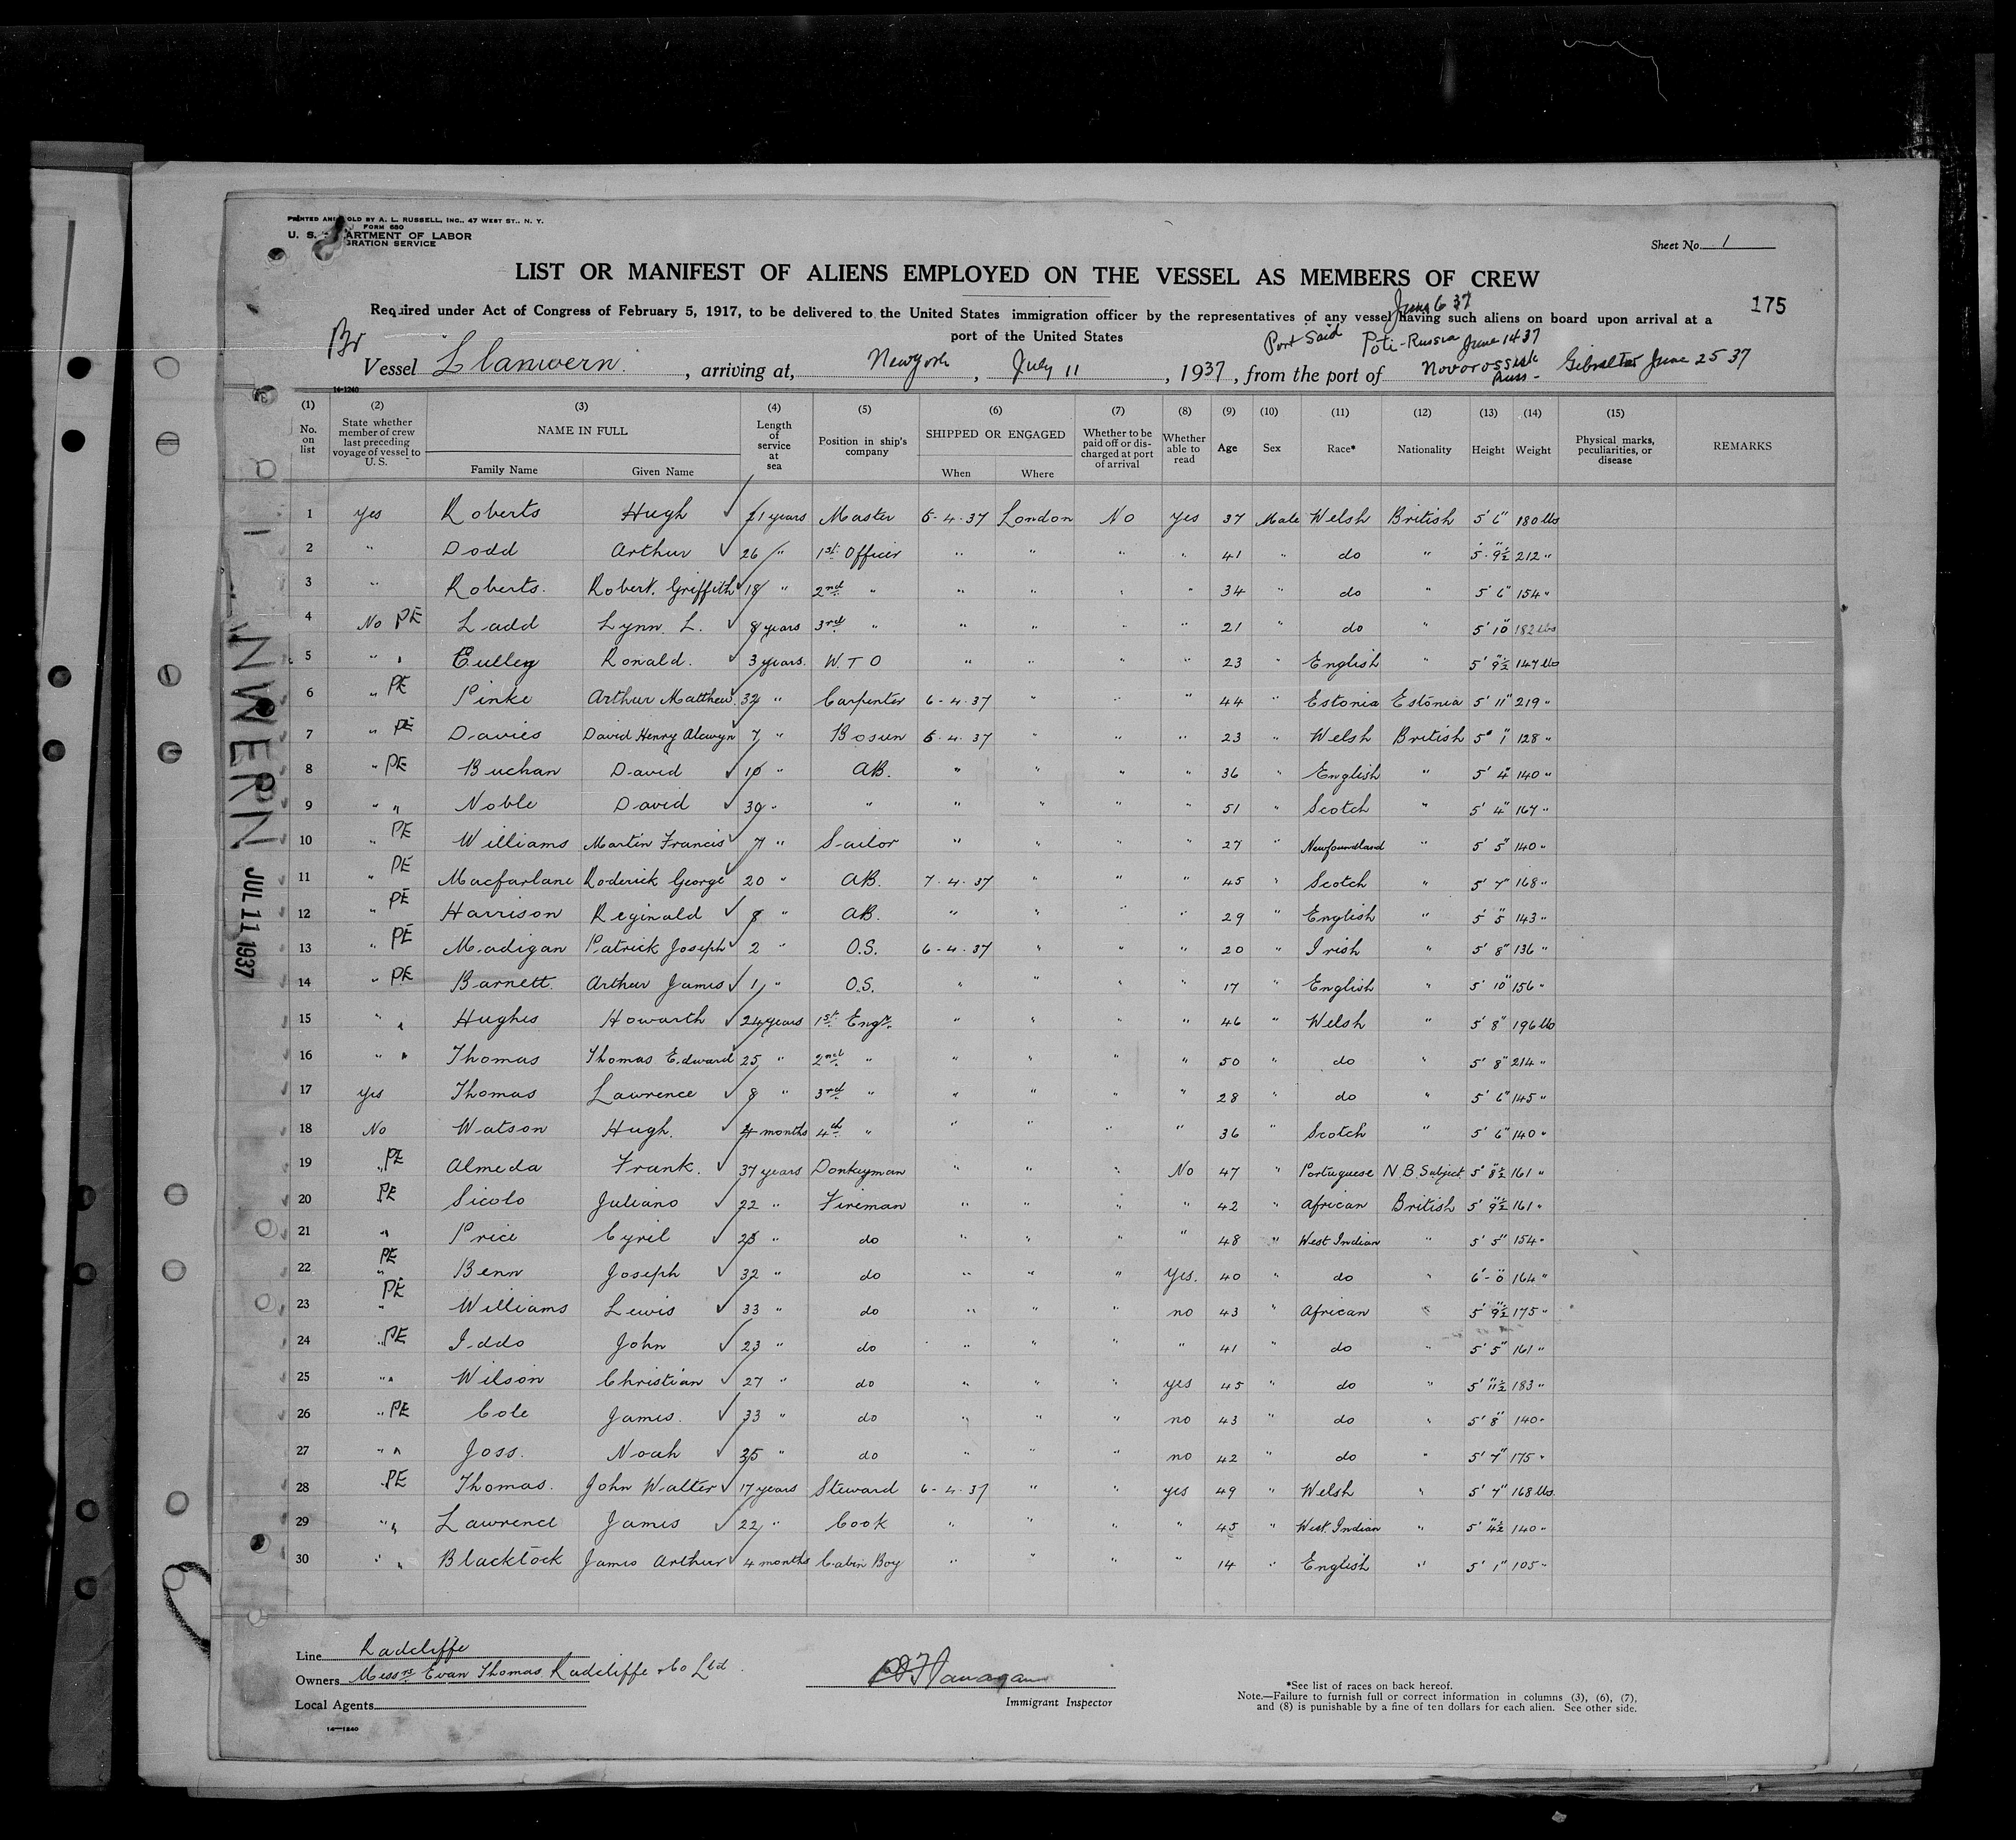 PRINTED AND SOLD BY A. L. RUSSELL, INC., 47 WEST ST., N. Y.
FORM 680
U. S. DEPARTMENT OF LABOR
IMMIGRATION SERVICE
Sheet No. 1
LIST OR MANIFEST OF ALIENS EMPLOYED ON THE VESSEL AS MEMBERS OF CREW
175
Required under Act of Congress of February 5, 1917, to be delivered to the United States immigration officer by the representatives of any vessel having such aliens on board upon arrival at a
port of the United States
June 6 37
Port Said Poti-Russia June 14 37
Br Vessel Llanwern, arriving at, New York, July 11, 1937, from the port of Novorossisk Russ- Gibralter June 25 37
14-1240
(1) (2) (3) (4) (5) (6) (7) (8) (9) (10) (11) (12) (13) (14) (15)
No. on list State whether member of crew last preceding voyage of vessel to U. S. NAME IN FULL Family Name Given Name Length of service at sea Position in ship's company SHIPPED OR ENGAGED When Where Whether to be paid off or discharged at port of arrival Whether able to read Age Sex Race* Nationality Height Weight Physical marks, peculiarities, or disease REMARKS
1 Yes Roberts Hugh 21 years Master 5-4-37 London No Yes 37 Male Welsh British 5' 6" 180 lbs
2 " Dodd Arthur 26 " 1st Officer " " " " 41 " do " 5' 9½" 212 "
3 " Roberts. Robert. Griffith 18 " 2nd " " " " " 34 " do " 5' 6" 154 "
4 No PE Ladd Lynn. L. 8 years 3rd " " " " " 21 " do " 5' 10" 182 lbs
5 " " Eulley Ronald. 3 years. W.T O " " " " 23 " English " 5' 9½" 147 lbs
6 " PE Pinke Arthur Matthew. 32 " Carpenter 6-4-37 " " " 44 " Estonia Estonia 5' 11" 219 "
7 " PE Davies David Henry Alewyn 7 " Bosun 5-4-37 " " " 23 " Welsh British 5' 1" 128 "
8 " PE Buchan David 10 " AB. " " " " 36 " English " 5' 4" 140 "
9 " " Noble David 39 " " " " " " 51 " Scotch " 5' 4" 167 "
10 " PE Williams Martin Francis 7 " Sailor " " " " 27 " Newfoundland " 5' 5" 140 "
11 " PE Macfarlane Roderick George 20 " AB. 7-4-37 " " " 45 " Scotch " 5' 7" 168 "
12 " PE Harrison Reginald 8 " AB. " " " " 29 " English " 5' 5" 143 "
13 " PE Madigan Patrick Joseph 2 " O.S. 6-4-37 " " " 20 " Irish " 5' 8" 136 "
14 " PE Barnett. Arthur James 1 " O.S. " " " " 17 " English " 5' 10" 156 "
15 " " Hughes Howarth 24 years 1st Engr. " " " " 46 " Welsh " 5' 8" 196 lbs
16 " " Thomas Thomas Edward 25 " 2nd " " " " " 50 " do " 5' 8" 214 "
17 Yes Thomas Lawrence 8 " 3rd " " " " " 28 " do " 5' 6" 145 "
18 No Watson Hugh. 4 months 4th " " " " " 36 " Scotch " 5' 6" 140 "
19 " PE Almeda Frank. 37 years Donkeyman " " " No 47 " Portuguese N.B. Subject 5' 8½" 161 "
20 PE Sicolo Juliano 22 " Fireman " " " " 42 " African British 5' 9½" 161 "
21 " Price Cyril 25 " do " " " " 48 " West Indian " 5' 5" 154 "
22 PE " Benn Joseph 32 " do " " " Yes. 40 " do " 6'-0" 164 "
23 PE " Williams Lewis 33 " do " " " no 43 " African " 5' 9½" 175 "
24 " PE Iddo John 23 " do " " " " 41 " do " 5' 5" 161 "
25 " " Wilson Christian 27 " do " " " yes 45 " do " 5' 11½" 183 "
26 " PE Cole James. 33 " do " " " no 43 " do " 5' 8" 140 "
27 " " Joss. Noah 35 " do " " " no 42 " do " 5' 7" 175 "
28 PE Thomas. John Walter 17 years Steward 6-4-37 " " yes 49 " Welsh " 5' 7" 168 lbs.
29 " " Lawrence James 22 " Cook " " " " 45 " West. Indian " 5' 4½" 140 "
30 " " Blacklock James Arthur 4 months Cabin Boy " " " " 14 " English " 5' 1" 105 "
NWERN JUL 11 1937
Line Radcliffe
Owners Messrs Evan Thomas Radcliffe & Co Ltd.
Local Agents
14—1240
Immigrant Inspector
*See list of races on back hereof.
Note.—Failure to furnish full or correct information in columns (3), (6), (7),
and (8) is punishable by a fine of ten dollars for each alien. See other side.